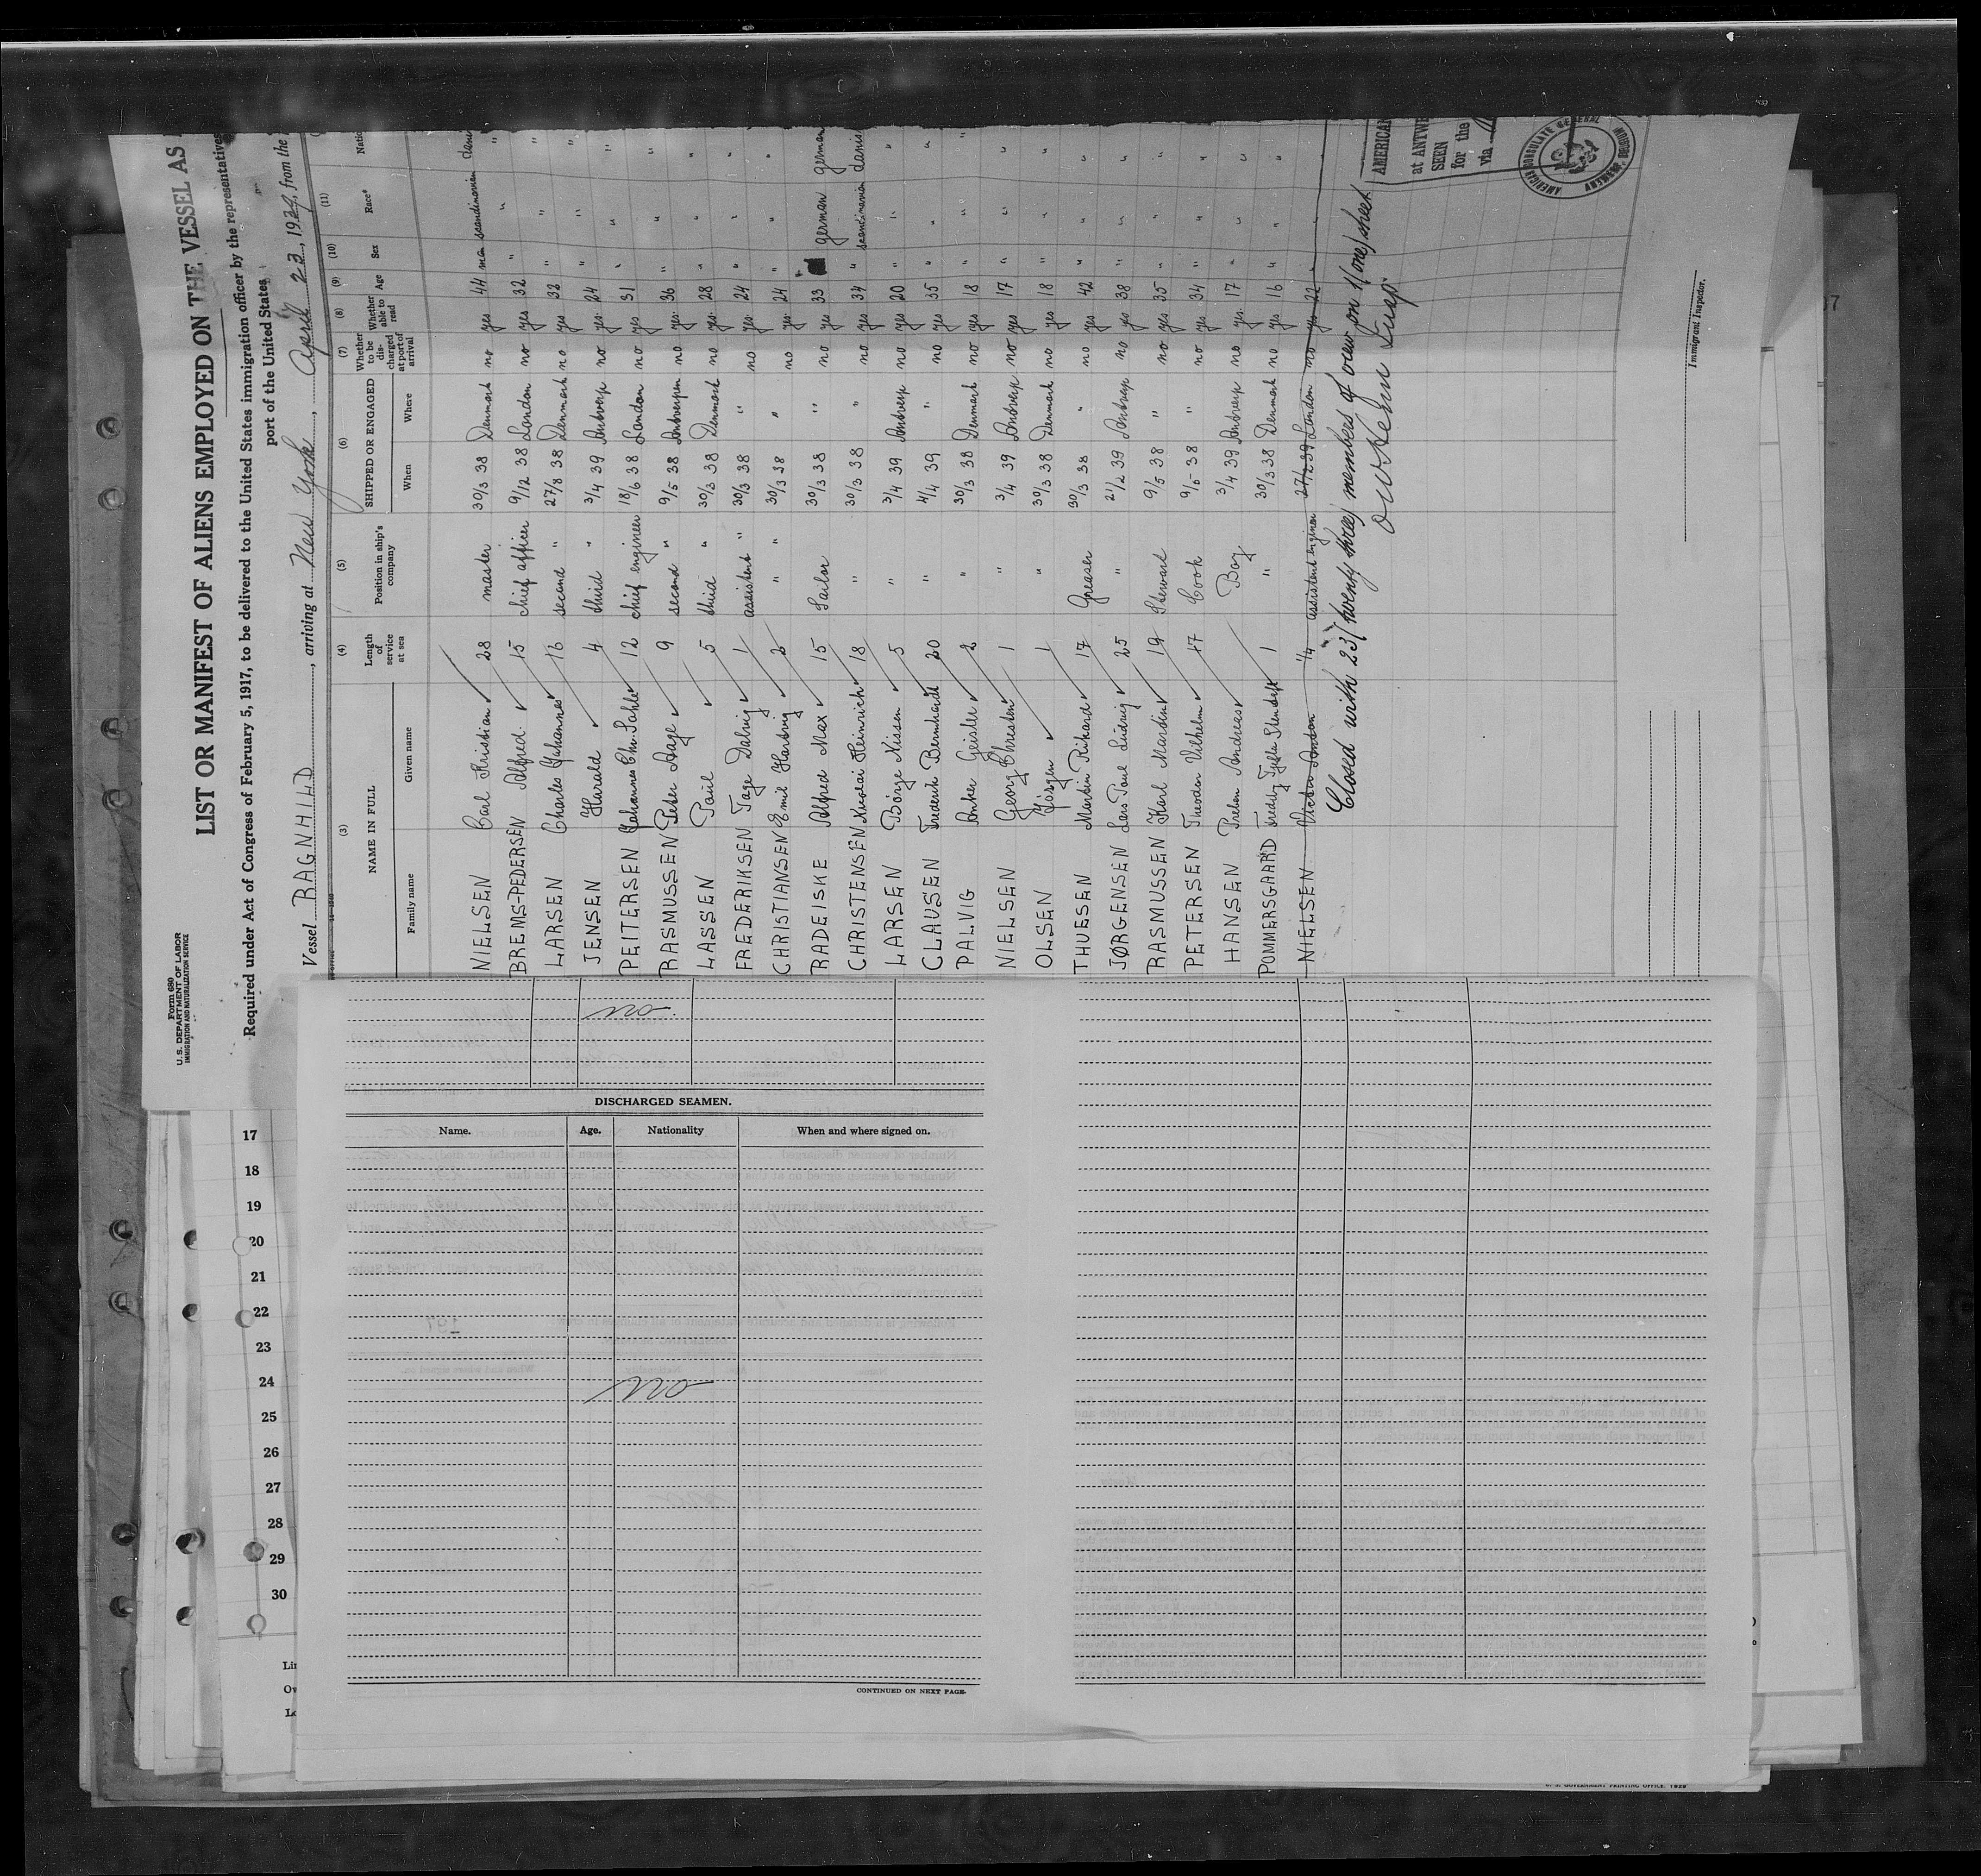 Form 680
U. S. DEPARTMENT OF LABOR
IMMIGRATION AND NATURALIZATION SERVICE
LIST OR MANIFEST OF ALIENS EMPLOYED ON THE VESSEL AS
Required under Act of Congress of February 5, 1917, to be delivered to the United States immigration officer by the representative
port of the United States
Vessel RAGNHILD, arriving at New York, April 23, 1939, from the
(3) (4) (5) (6) (7) (8) (9) (10) (11)
NAME IN FULL Length of service at sea Position in ship's company SHIPPED OR ENGAGED Whether to be discharged at port of arrival Whether able to read Age Sex Race* Natio
Family name Given name When Where
NIELSEN Carl Kristian 28 master 30/3 38 Denmark no yes 44 man scandinavian danis
BREMS-PEDERSEN Alfred 15 chief officer 9/12 38 London no yes 32 " " "
LARSEN Charles Johannes 16 second " 27/8 38 Denmark no yes 32 " " "
JENSEN Harald 4 third " 3/4 39 Antwerp no yes 24 " " "
PEITERSEN Johannes Chr. 12 chief engineer 18/6 38 London no yes 31 " " "
RASMUSSEN Peter Aage 9 second " 9/5 38 Antwerpen no yes 36 " " "
LASSEN Paul 5 third " 30/3 38 Denmark no yes 28 " " "
FREDERIKSEN Tage 1 assistent " 30/3 38 " no yes 24 " " "
CHRISTIANSEN Emil 2 " " 30/3 38 " no yes 24 " " "
RADEISKE Alfred Max 15 Sailor 30/3 38 " no yes 33 german german
CHRISTENSEN Nicolai Heinrich 18 " 30/3 38 " no yes 34 " scandinavian danis
LARSEN Börge Nissen 5 " 3/4 39 Antwerp no yes 20 " " "
CLAUSEN Frederik Bernhardt 20 " 4/4 39 " no yes 35 " " "
PALVIG Anker Geisler 2 " 30/3 38 Denmark no yes 18 " " "
NIELSEN Georg Chresten 1 " 3/4 39 Antwerp no yes 17 " " "
OLSEN Jörgen 1 " 30/3 38 Denmark no yes 18 " " "
THUESEN Martin Rikard 17 Greaser 30/3 38 " no yes 42 " " "
JØRGENSEN Lars Poul Ludvig 25 " 21/2 39 Antwerp no yes 38 " " "
RASMUSSEN Karl Martin 19 Steward 9/5 38 " no yes 35 " " "
PETERSEN Theodor Vilhelm 17 Cook 9/5 38 " no yes 34 " " "
HANSEN Preben Andreas Boy 3/4 39 Antwerp no yes 17 " " "
POMMERSGAARD Freddy 1 " 30/3 38 Denmark no yes 16 " " "
NIELSEN Victor 1/4 assistent engineer 27/2 39 London no yes 22 "
Closed with 23/ twenty three/ members of crew on 1/ one/ sheet
AMERICAN
at ANTWE
SEEN
for the
via
AMERICAN CONSULATE GENERAL
Immigrant Inspector.
17
18
19
20
21
22
23
24
25
26
27
28
29
30
no
DISCHARGED SEAMEN.
Name. Age. Nationality When and where signed on.
no
CONTINUED ON NEXT PAGE.
U. S. GOVERNMENT PRINTING OFFICE: 1929